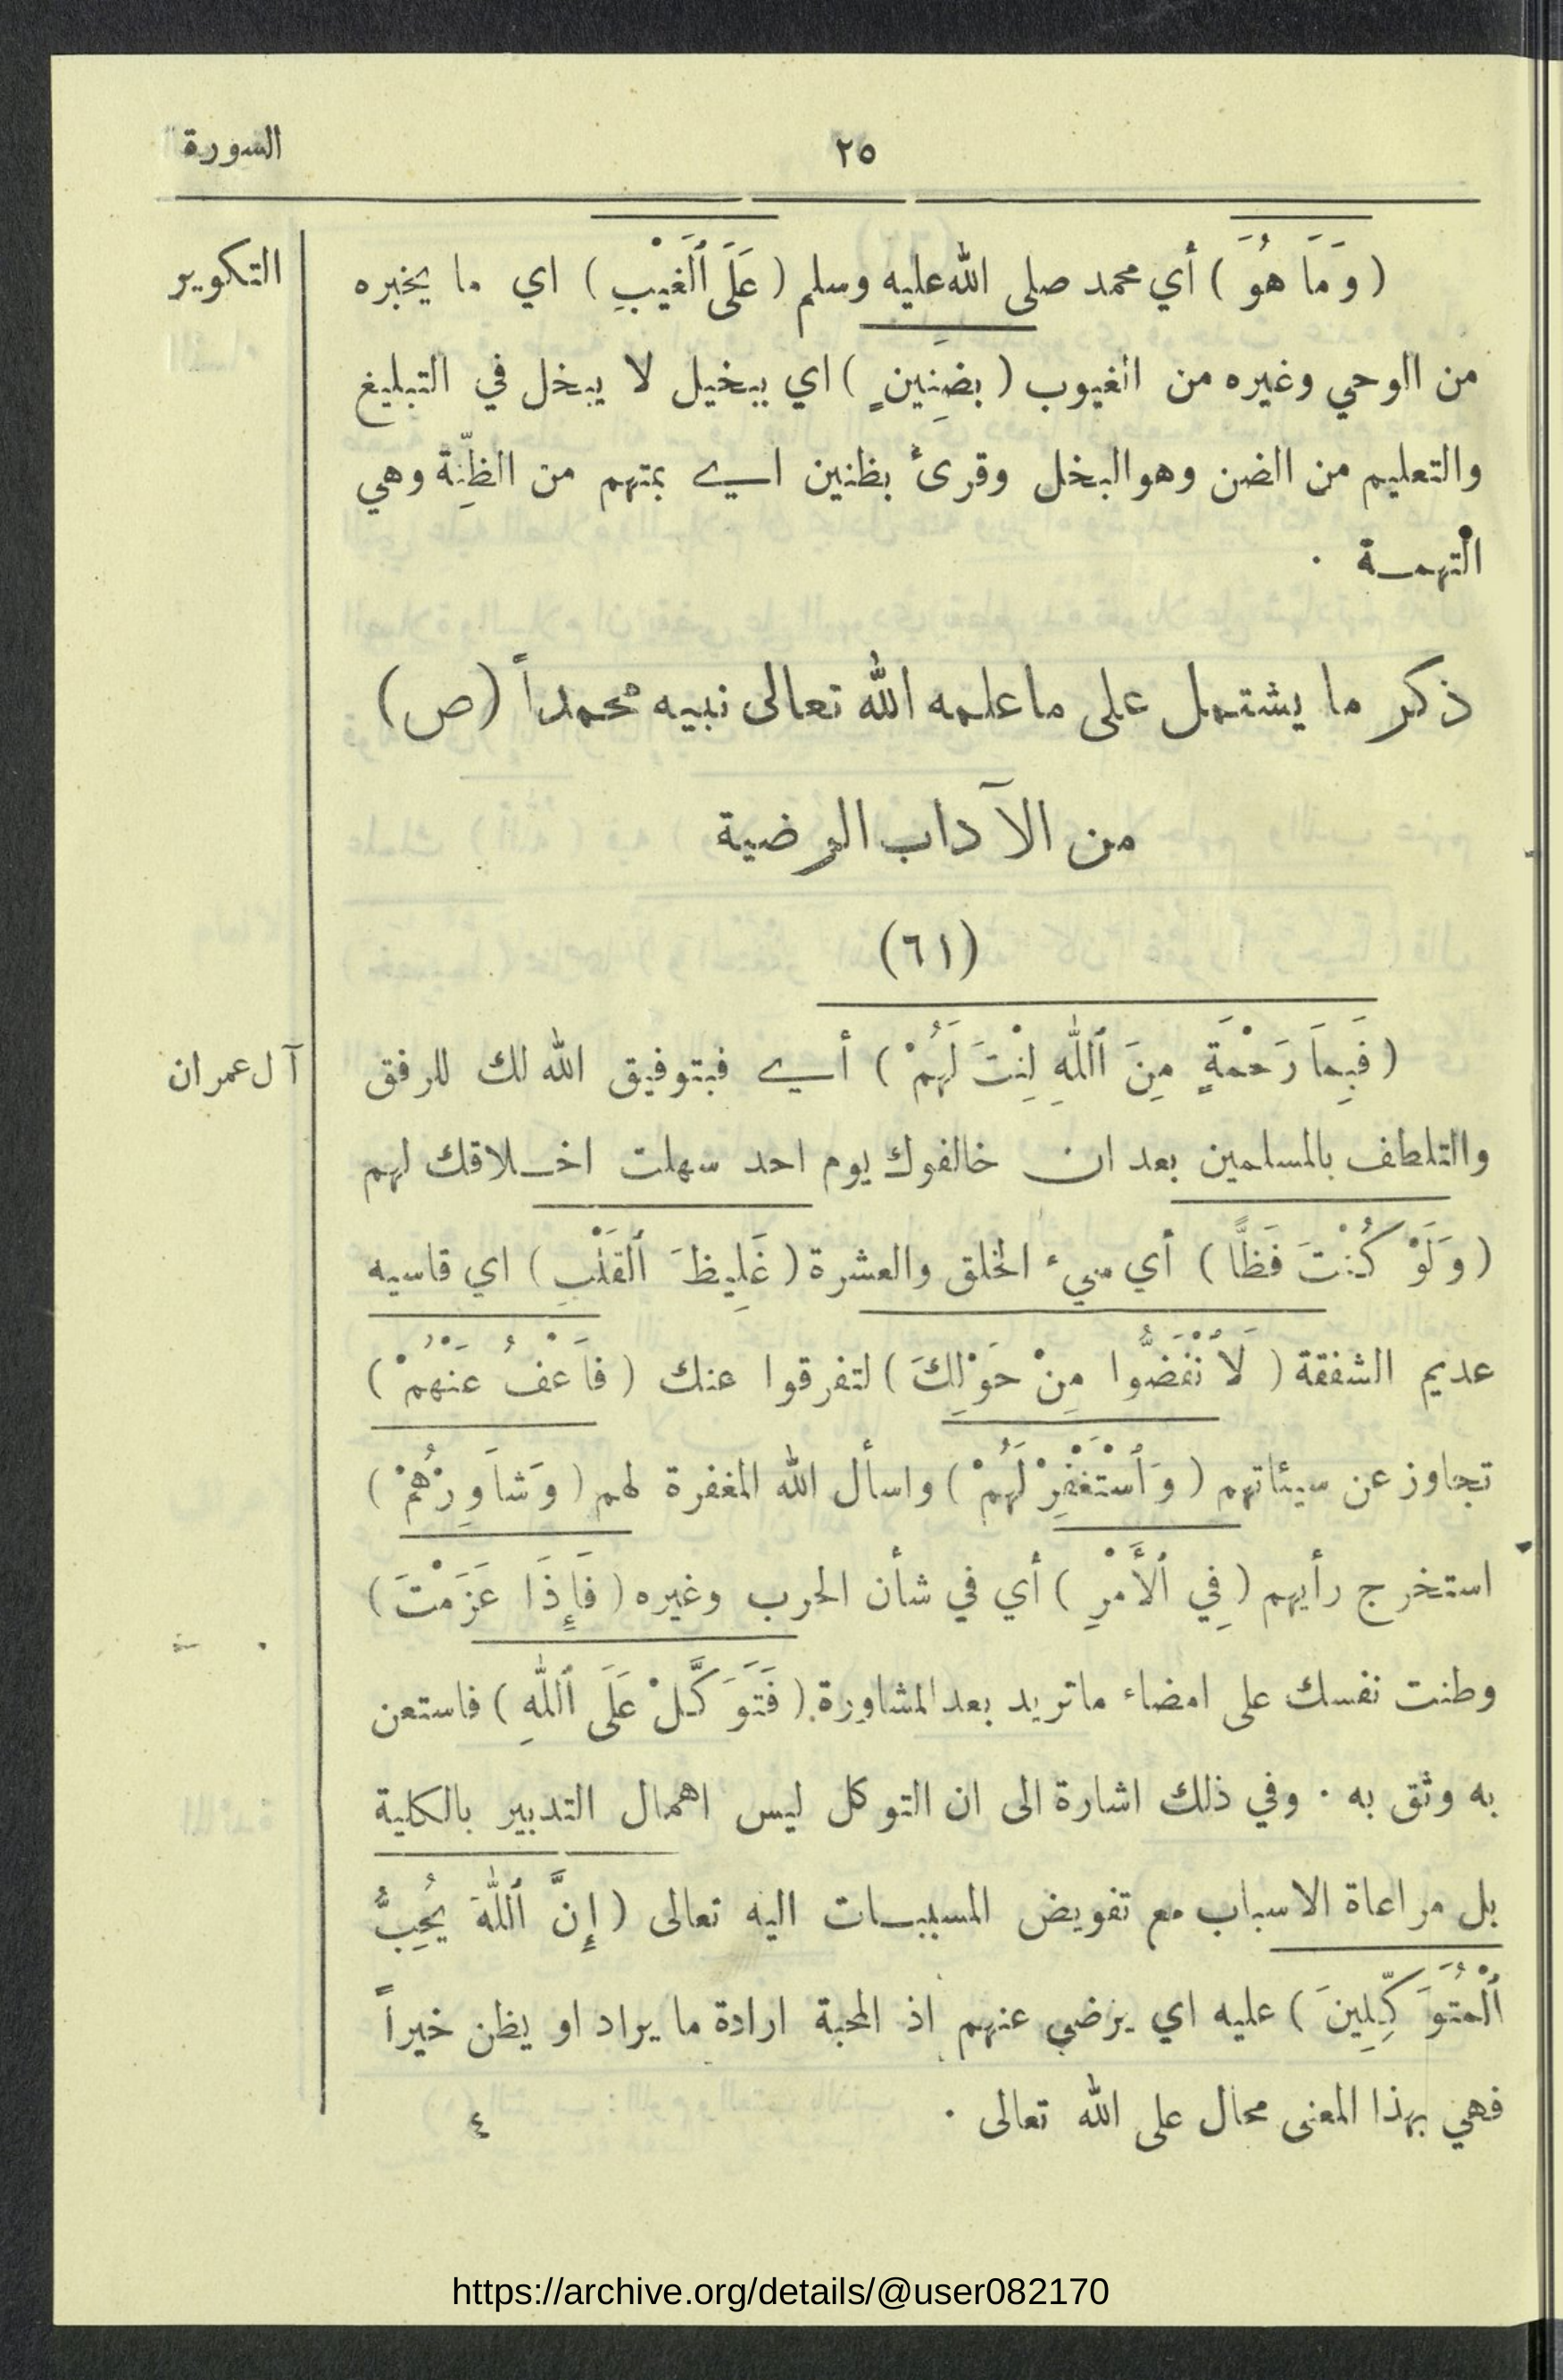 السورة
٢٥
التكوير
(وَمَا هُوَ) أي محمد صلى الله عليه وسلم (عَلَى ٱلْغَيْبِ) اي ما يخبره
من الوحي وغيره من الغيوب (بضَنِينٍ) اي ببخيل لا يبخل في التبليغ
والتعليم من الضن وهو البخل وقرئ بظنين اي بمتهم من الظِّنِة وهي
التهمة ·
ذكر ما يشتمل على ما علمه الله تعالى نبيه محمداً (ص)
من الآداب المرضية
(٦١)
آل عمران
(فَبِمَا رَحْمَةٍ مِنَ ٱللّٰهِ لِنْتَ لَهُمْ) أي فبتوفيق الله لك للرفق
والتلطف بالمسلمين بعد ان خالفوك يوم احد سهلت اخلاقك لهم
(وَلَوْ كُنْتَ فَظًّا) أي سيء الخلق والعشرة (غَلِيظَ ٱلْقَلْبِ) اي قاسيه
عديم الشفقة (لَاُنْفَضُّوا مِنْ حَوْلِكَ) لتفرقوا عنك (فَاعْفُ عَنْهُمْ)
تجاوز عن سيئاتهم (وَٱسْتَغْفِرْ لَهُمْ) واسأل الله المغفرة لهم (وَشَاوِرْهُمْ)
استخرج رأيهم (فِي ٱلْأَمْرِ) أي في شأن الحرب وغيره (فَإِذَا عَزَمْتَ)
وطنت نفسك على امضاء ما تريد بعد المشاورة (فَتَوَكَّلْ عَلَى ٱللّٰهِ) فاستعن
به وثق به · وفي ذلك اشارة الى ان التوكل ليس اهمال التدبير بالكلية
بل مراعاة الاسباب مع تفويض المسببات اليه تعالى (إِنَّ ٱللّٰهَ يُحِبُّ
ٱلْمُتَوَكِّلِينَ) عليه اي يرضى عنهم اذ المحبة ارادة ما يراد او يظن خيراً
فهي بهذا المعنى محال على الله تعالى ·
٤
https://archive.org/details/@user082170